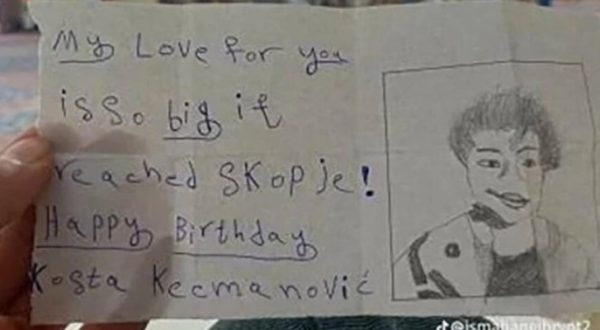 My Love for you
is so big it
reached SKopje!
Happy Birthday
Kosta Kecmanović